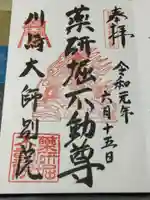 奉拝
令和元年
六月十五日
薬研堀不動尊
川崎大師別院